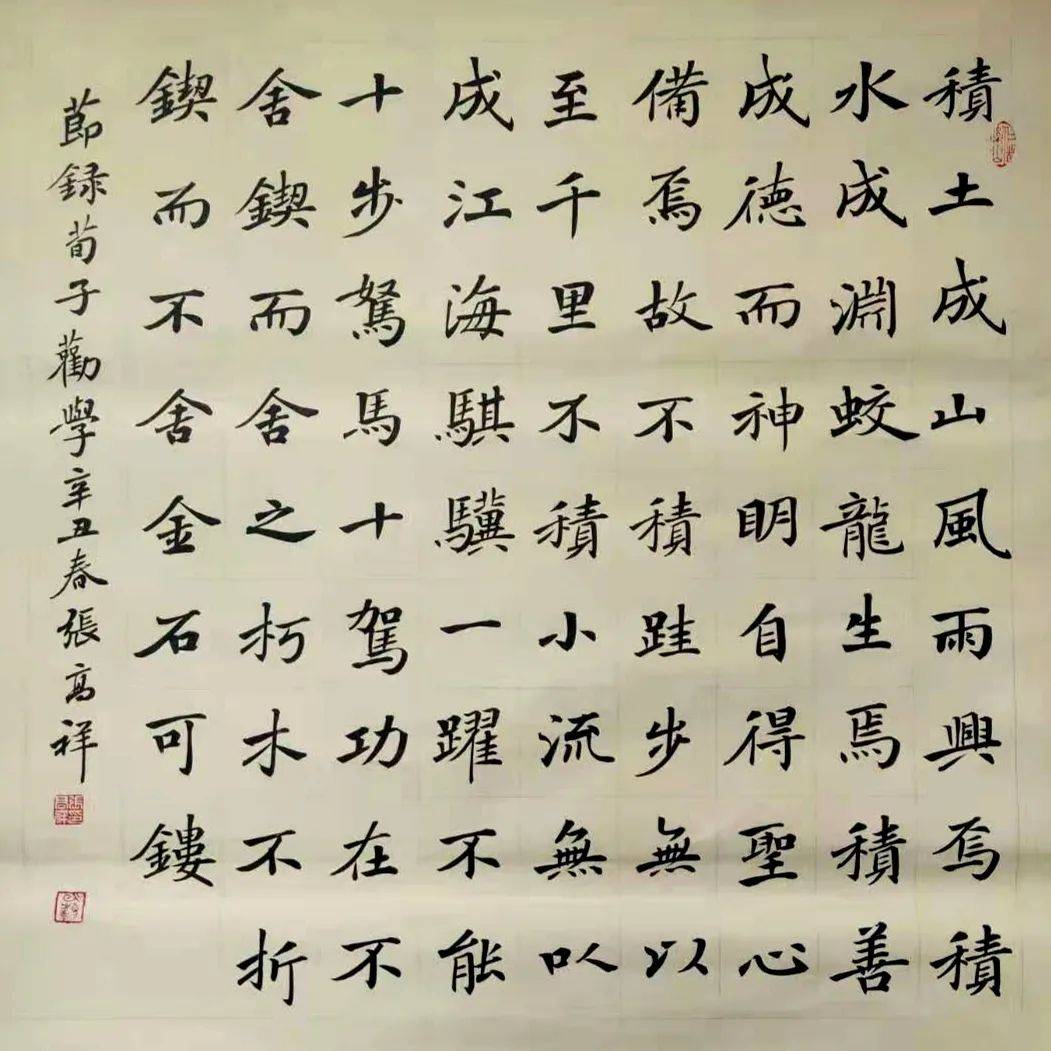 積土成山風雨興焉積
水成淵蛟龍生焉積善
成德而神明自得聖心
備焉故不積跬步無以
至千里不積小流無以
成江海騏驥一躍不能
十步駑馬十駕功在不
舍鍥而舍之朽木不折
鍥而不舍金石可鏤
節録荀子勸學辛丑春張高祥